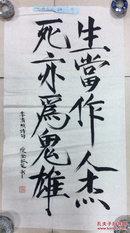 生當作人杰
死亦爲鬼雄